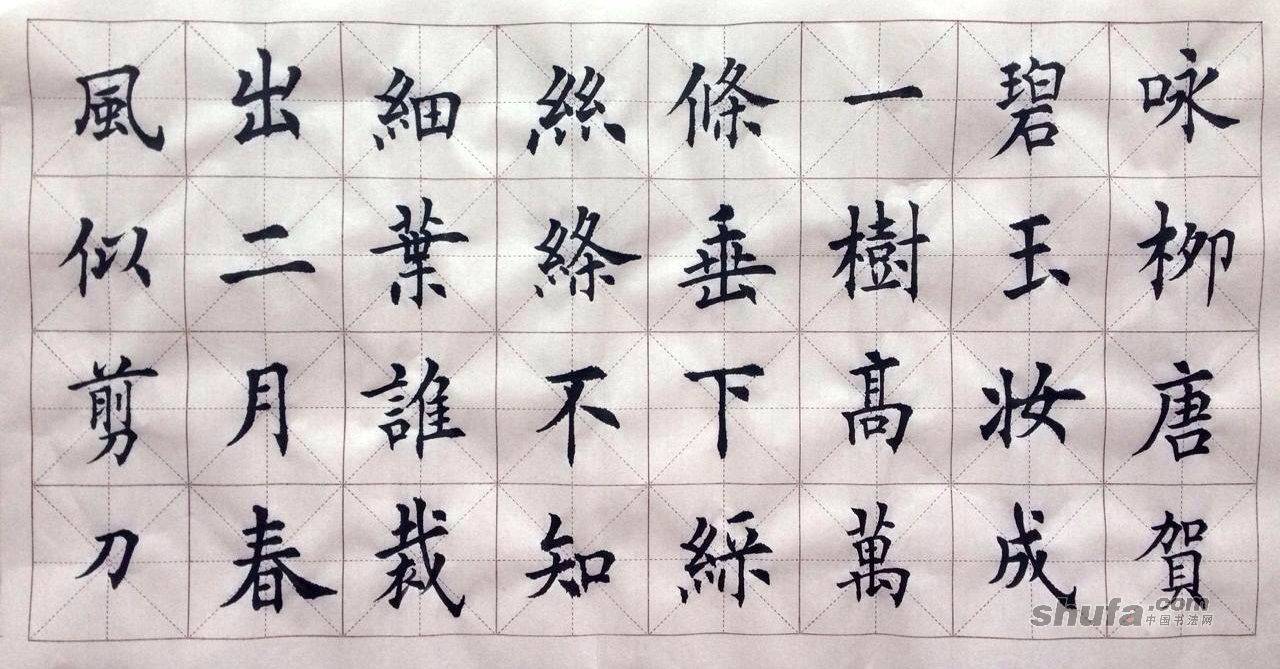 咏柳唐賀
碧玉妆成
一樹髙萬
條垂下綵
絲絛不知
細葉誰裁
出二月春
風似剪刀
shufa.com
中国书法网